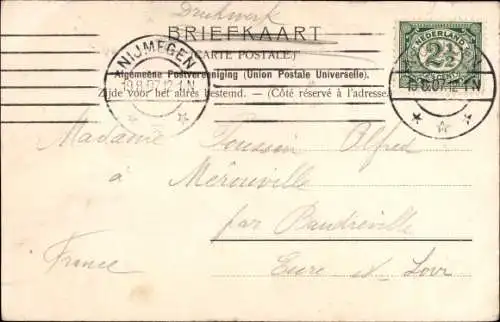 Drukwerk
BRIEFKAART
(CARTE POSTALE.)
Algemeene Postvereeniging (Union Postale Universelle).
Zijde voor het adres bestemd. — (Côté réservé à l'adresse
NIJMEGEN
19.8.07.12-1N
NEDERLAND
2½
19.8.07.12-1N
Madame Toussin Alfred
à Mérouville
par Baudreville
France Eure & Loir